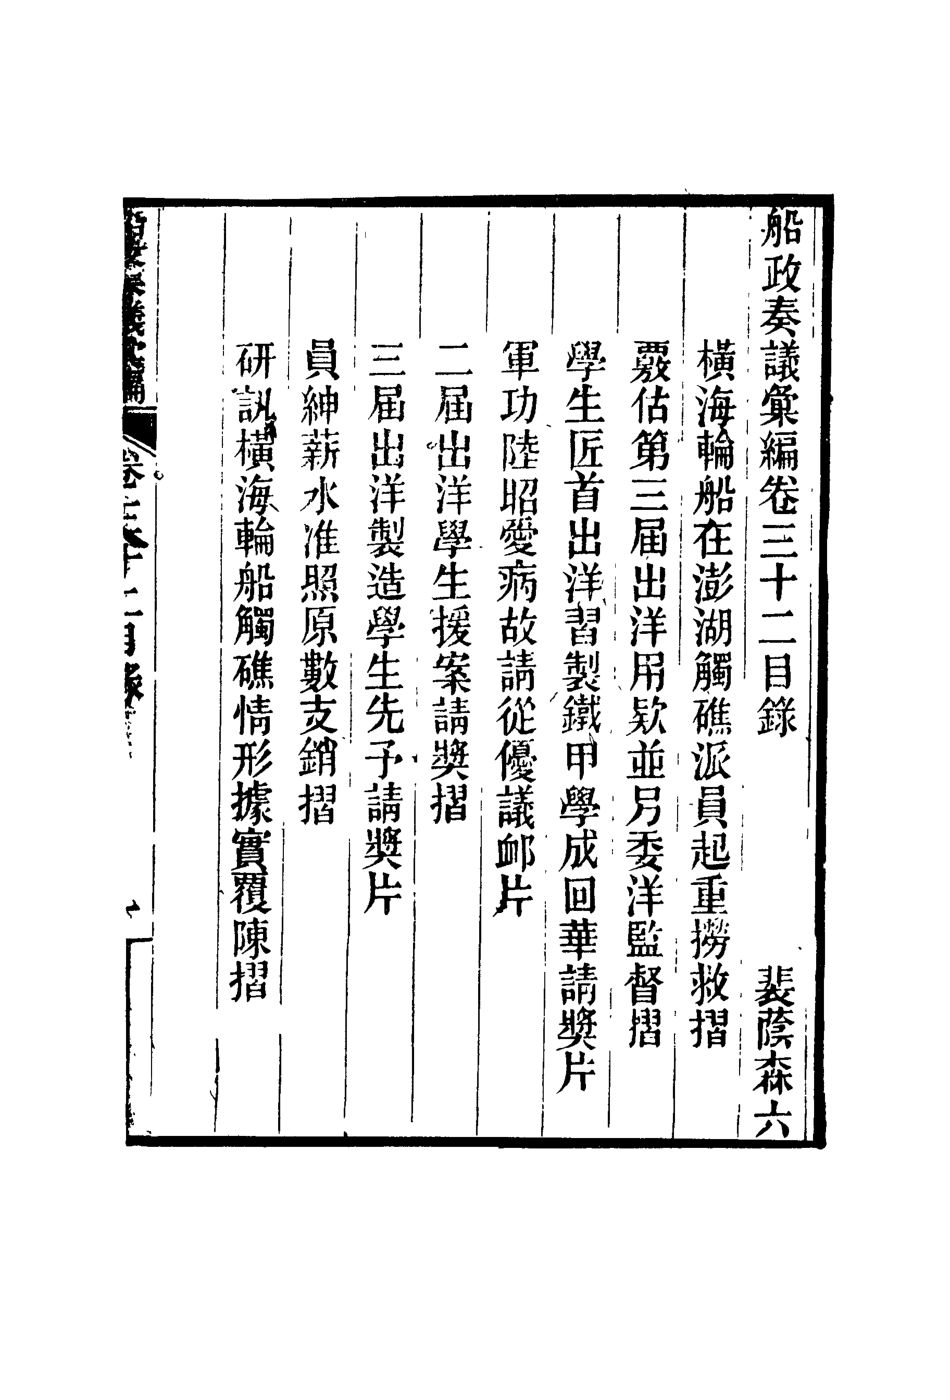 船政奏議彙編卷三十二目錄 裴蔭森六
橫海輪船在澎湖觸礁派員起重撈救摺
覈估第三屆出洋用欵並另委洋監督摺
學生匠首出洋習製鐵甲學成回華請獎片
軍功陸昭愛病故請從優議邮片
二屆出洋學生援案請獎摺
三屆出洋製造學生先予請獎片
員紳薪水准照原數支銷摺
研訊橫海輪船觸礁情形據實覆陳摺
船政奏議彙編 卷三十二目錄